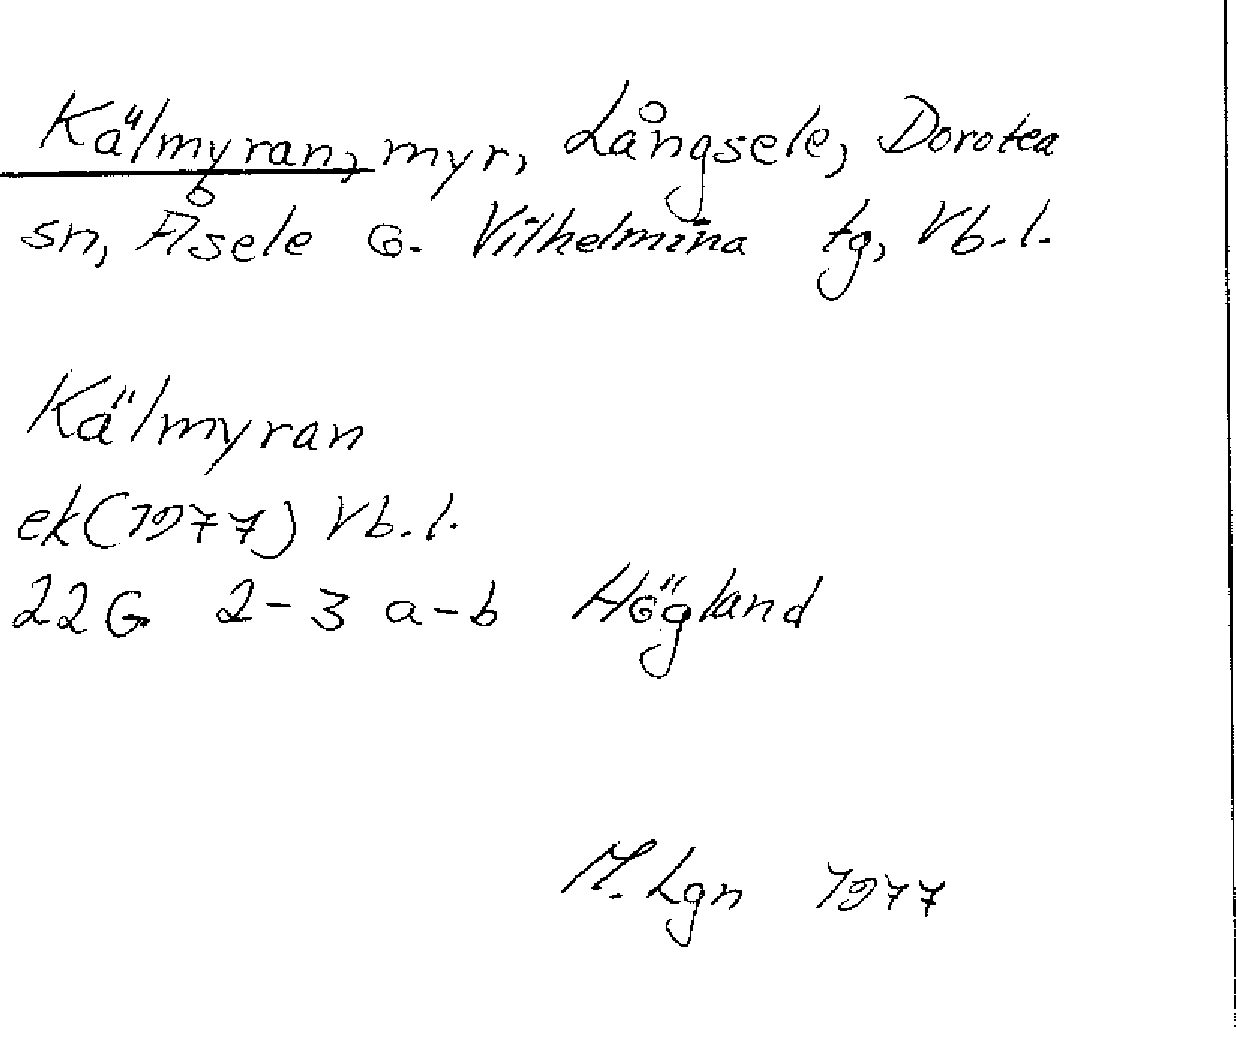 Kälmyran, myr, Långsele, Dorotea
sn, Åsele o. Vilhelmina tg, Vb. l.
Kälmyran
ek (1977) Vb. l.
22G 2-3 a-b Högland
M. Lgn 1977